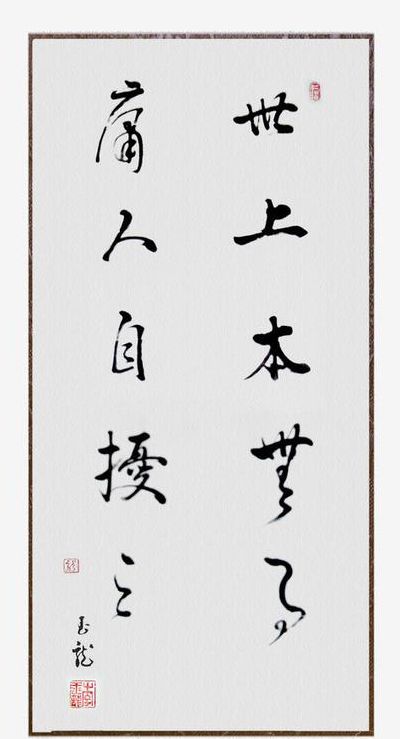 世上本無事
庸人自擾之
玉龍